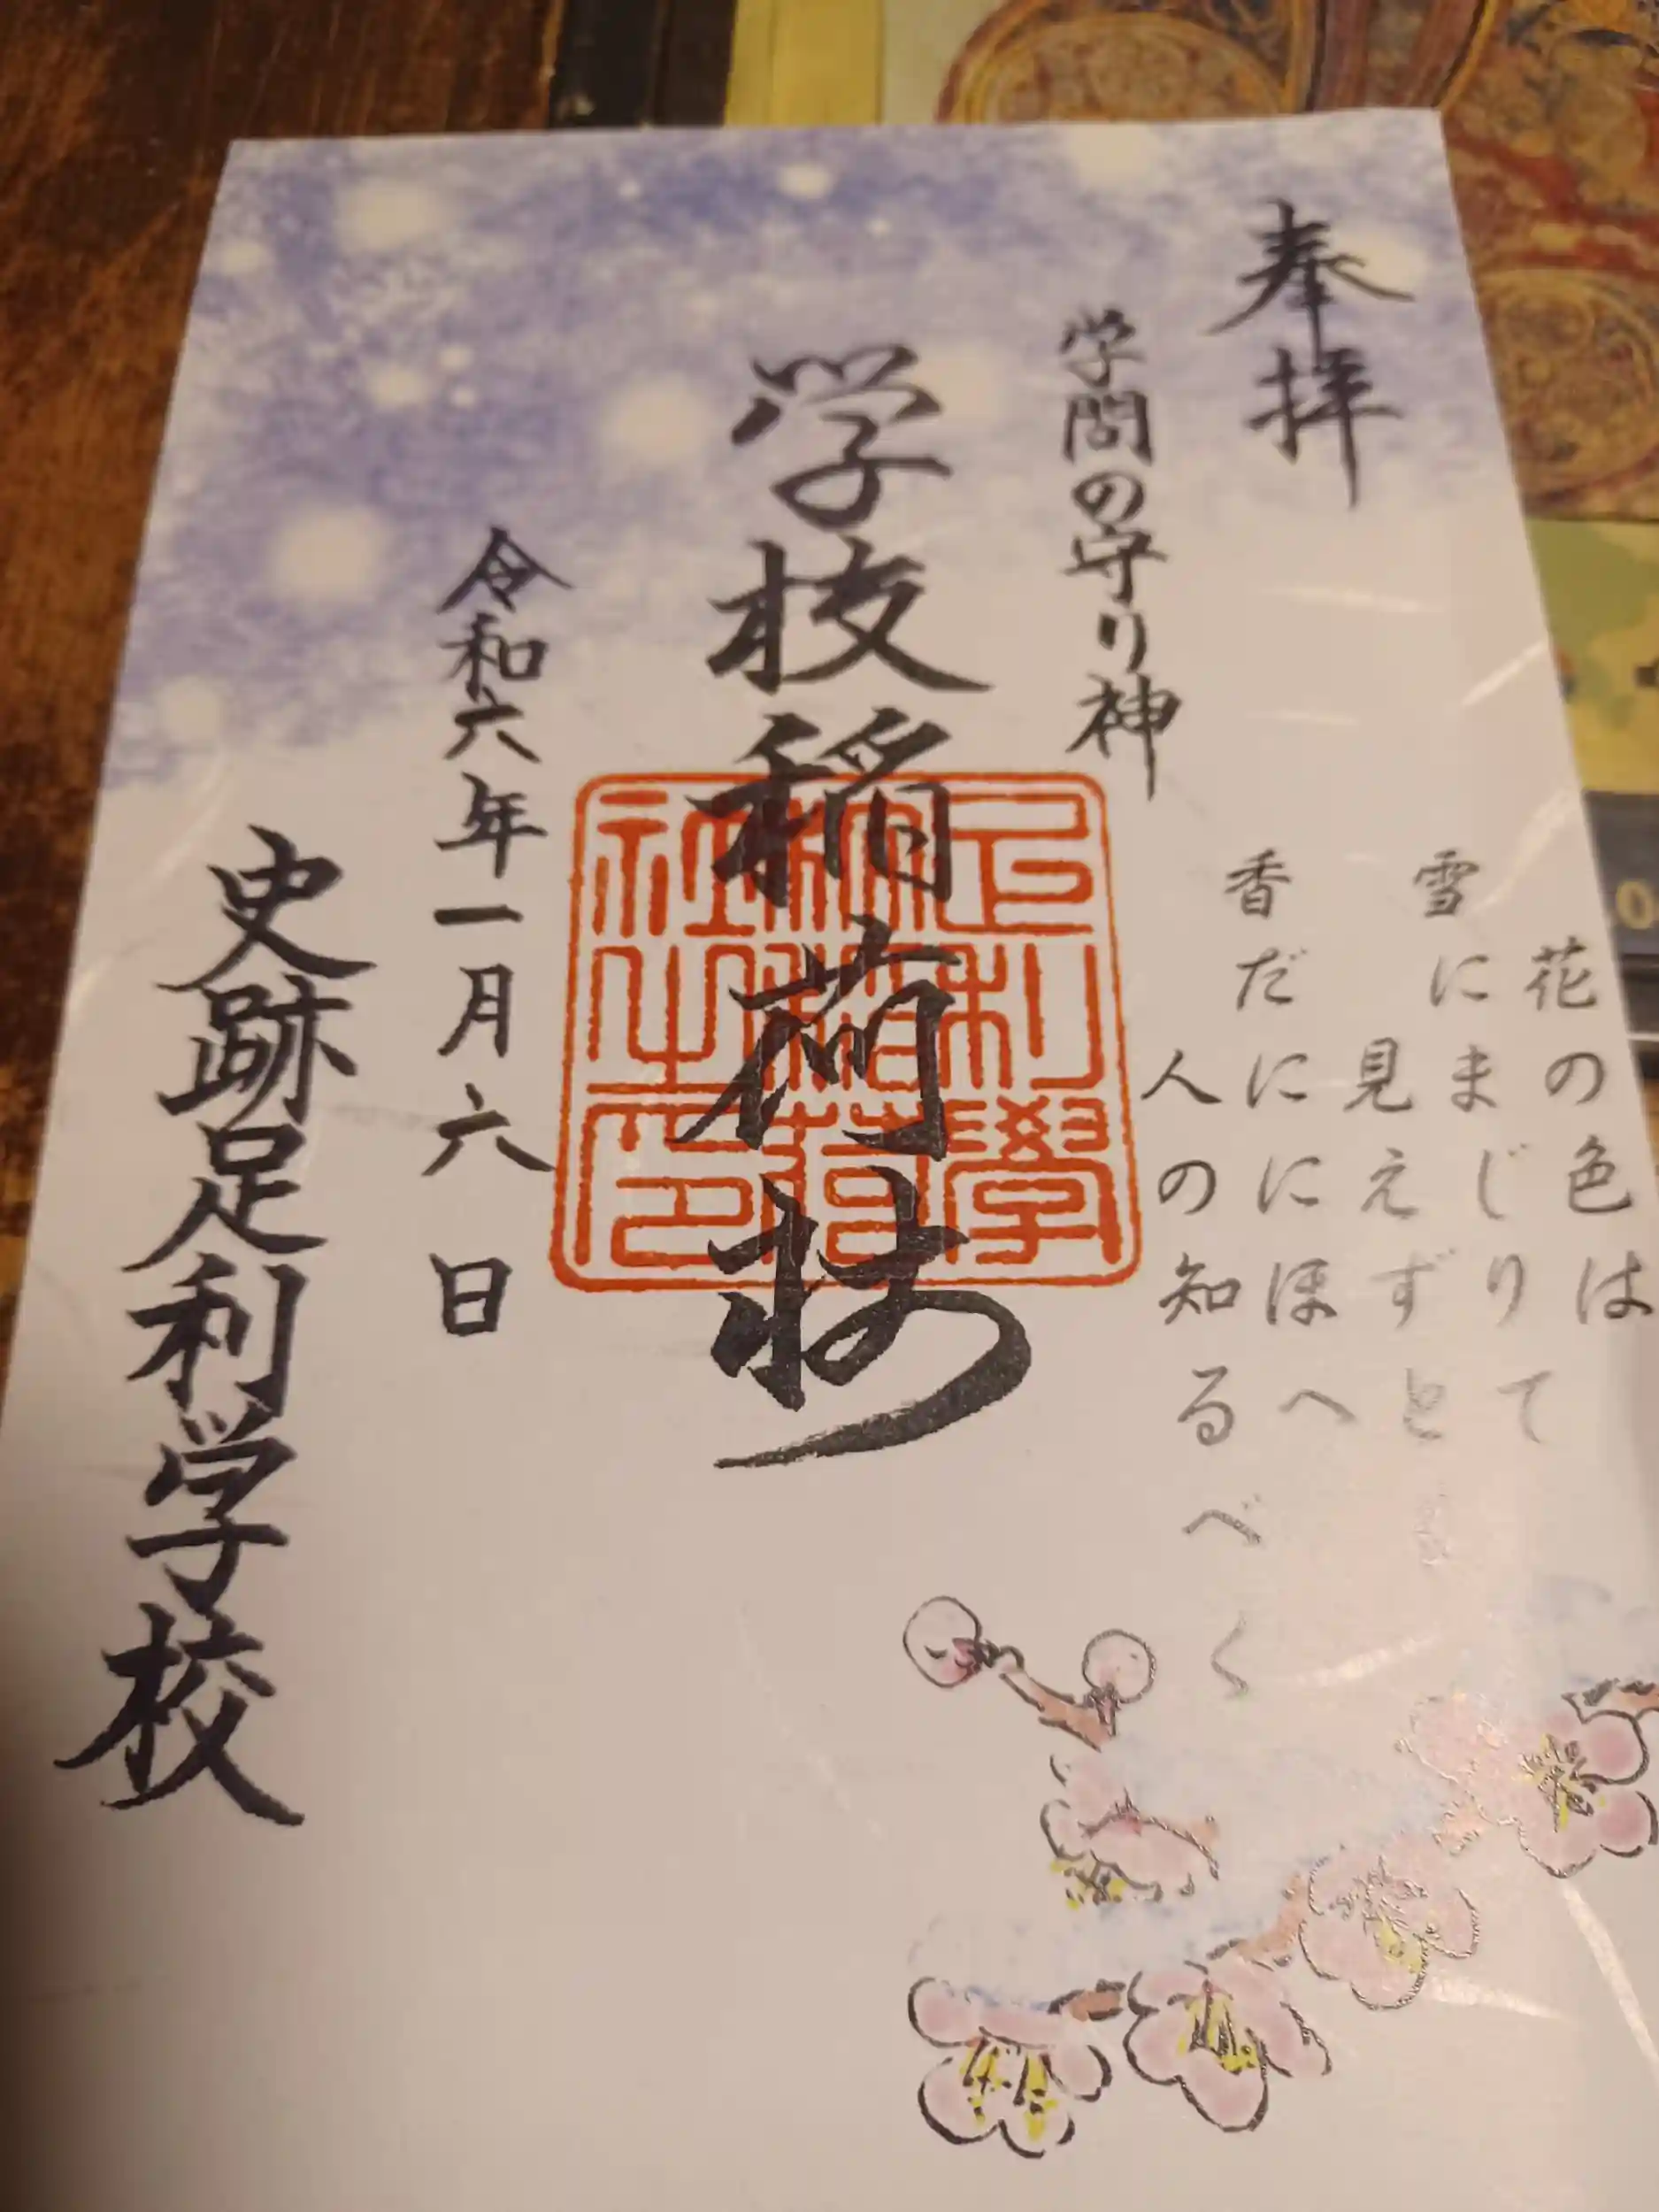 奉拝
学問の守り神
花の色は
雪にまじりて
見えずとも
香だににほへ
人の知るべく
学校稲荷社
足利學
校稲荷
社之印
令和六年一月六日
史跡足利学校